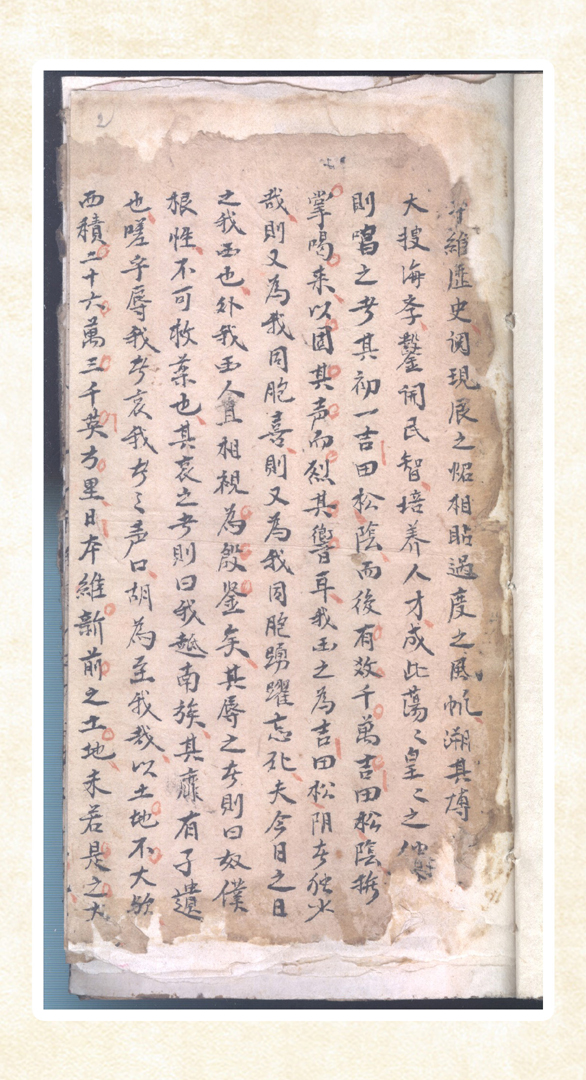 維歷史闊現展之怊相貼過度之風帆溯其磚
大搜海孛鑿開民智培养人才成此蕩〻皇〻之
則唱之者其初一吉田松陰而後有效千萬吉田松陰
掌喝来以固其声而烈其響耳我国之為吉田松阴者独少
哉則又為我同胞喜則又為我同胞踴躍忘死夫今日之日
之我国也外我国人直相視為殷鉴矣其辱之者則曰奴僕
根性不可救藥也其哀之者則曰我越南族其靡有孑遺
也嗟乎辱我者哀我者之声口胡為至我哉以土地不大欤
面積二十六萬三千英方里日本維新前之土地未若是之大
2